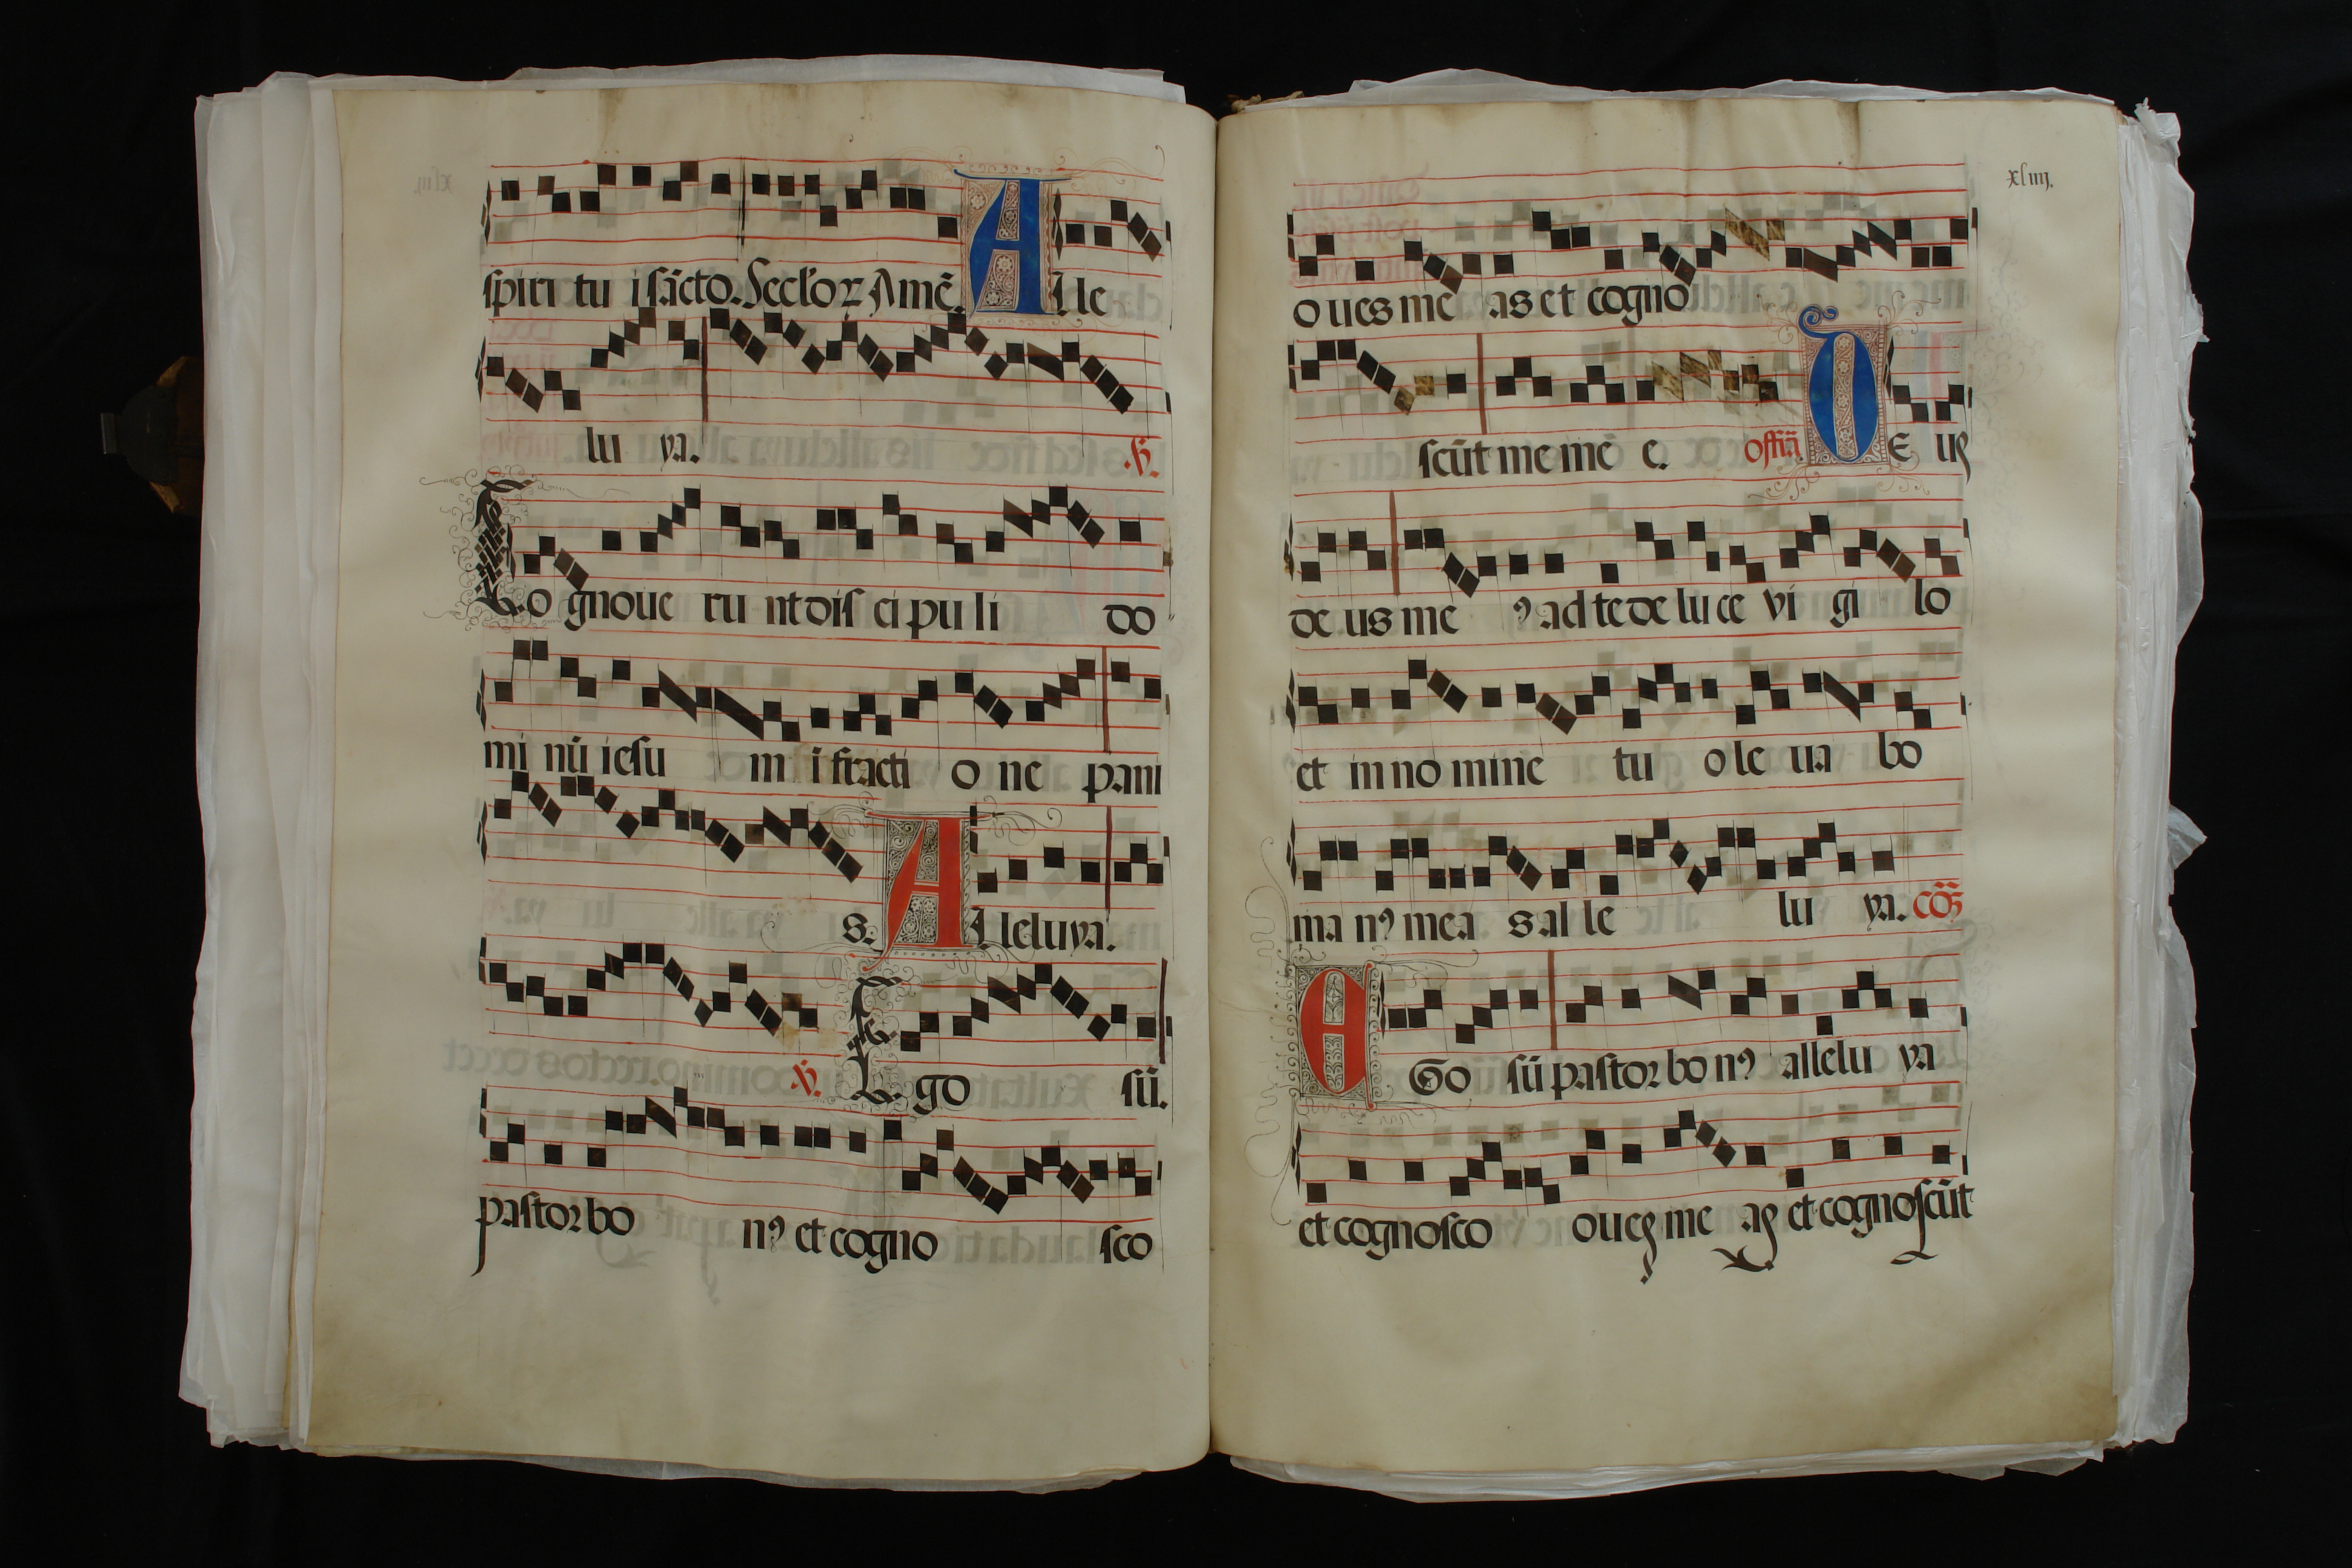 spiri tu i sācto. Secloꝝ Amē. A lle
lu ya. ℣.
Co gnoue ru nt dis ci pu li do
mi nū iesu m i fracti o ne pani
s. A lleluya.
℣. E go sū.
pastor bo nꝰ et cogno sco
xliiij.
o ues me as et cogno
scūt me me e. offā. D E us
de us me ꝰ ad te de lu ce vi gi lo
et in no mine tu o le ua bo
ma nꝰ mea s al le lu ya. cō
E Go sū pastor bo nꝰ allelu ya
et cognosco oues me as et cognoscūt